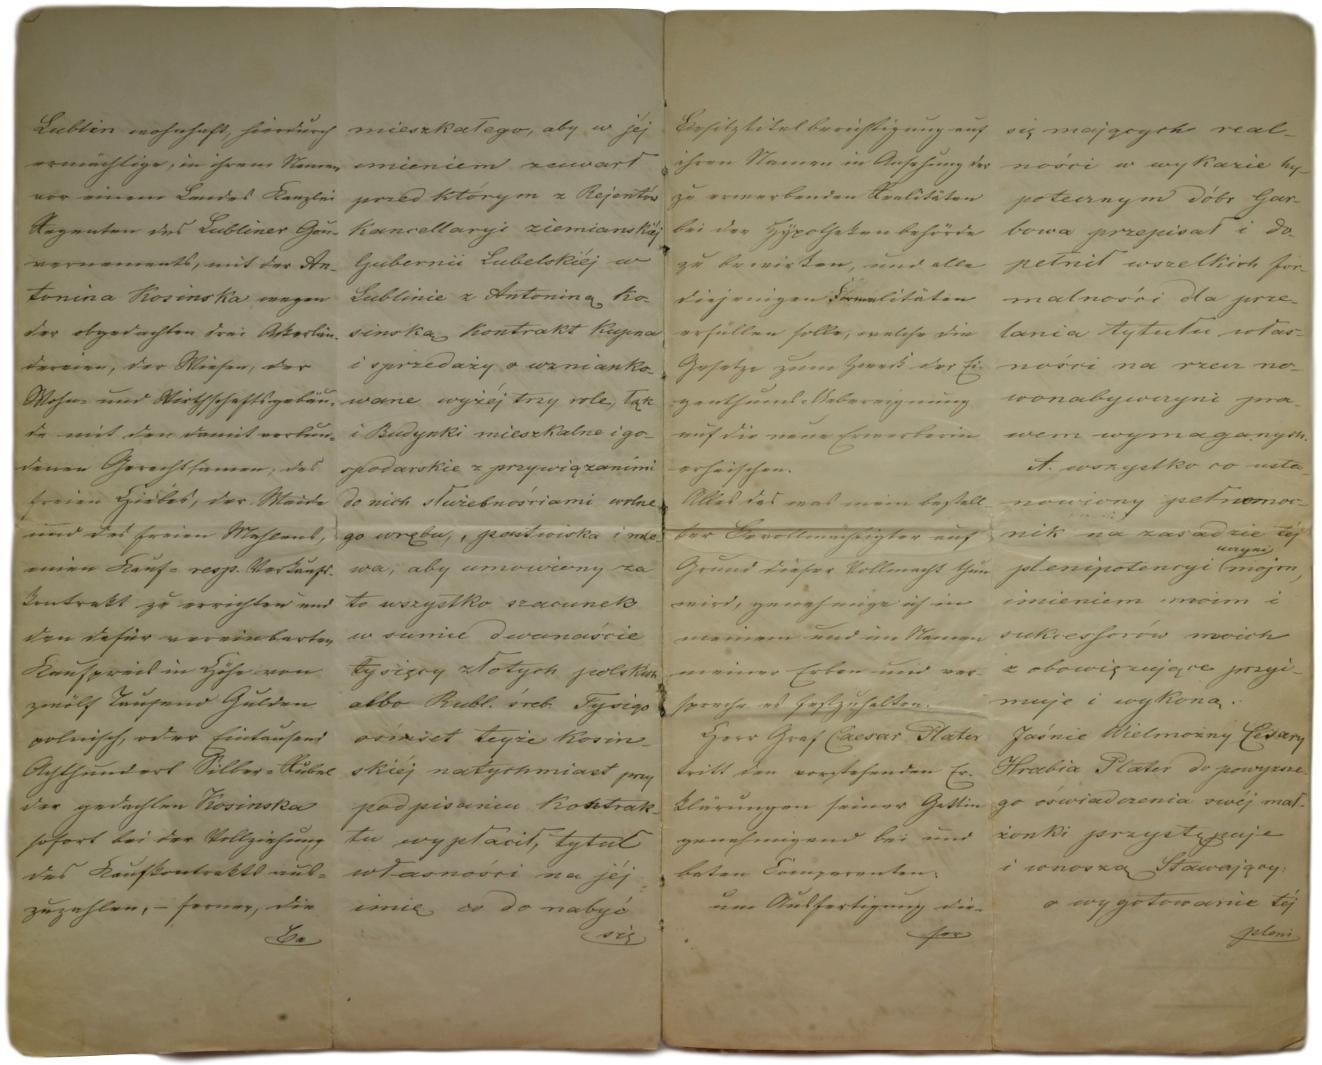 Lublin wohnhaft, hierdurch
ermächtige, in ihrem Namen
vor einem Landes Kanzlei
Regenten des Lubliner Gou-
vernements, mit der An-
tonina Kosinska wegen
der obgedachten drei Ackerlän-
dereien, der Wiesen, der
Wohn- und Wirthschaftsgebäu-
de mit den damit verbun-
denen Gerechtsamen, des
freien Hiebes, der Weide
und des freien Mahlens,
einen Kauf- resp. Verkaufs-
kontrakt zu errichten und
den dafür vereinbarten
Kaufpreis in Höhe von
zwölf Tausend Gulden
polnisch, oder Eintausend
Achthundert Silber-Rubel
der gedachten Kosinska
sofort bei der Vollziehung
des Kaufkontrakts aus-
zuzahlen, – ferner, die
Be
mieszkałego, aby w jéj
imieniem zawarł
przed którym z Rejentów
Kancellaryi ziemianskiéj
Gubernii Lubelskiéj w
Lublinie z Antoniną Ko-
sinską Kontrakt Kupna
i sprzedaży o wzmianko-
wane wyżéj trzy role, łąk
i Budynki mieszkalne i go-
spodarskie z przywiązanimi
do nich służebnościami wolne-
go wrębu, pastwiska i mle-
wa, aby umowiony za
to wszystko szacunek
w sumie dwanaście
tysięcy złotych polskich
albo Rubl. śreb. Tysiąc
ośmset teyże Kosin-
skiéj natychmiast przy
podpisaniu Kontrak-
tu wypłacił, tytuł
własności na jéj
imię co do nabyć
się
Besitztitelberichtigung auf
ihren Namen in Ansehung der
zu erwerbenden Realitäten
bei der Hÿpothekenbehörde
zu bewirken, und alle
diejenigen Formalitäten
erfüllen solle, welche die
Gesetze zum Zweck der Ei-
genthums-Uebereignung
auf die neue Erwerberin
erheischen.
Alles das was mein bestell-
ter Bevollmächtigter auf
Grund dieser Vollmacht thun
wird, genehmige ich in
meinem und im Namen
meiner Erben und ver-
spreche es festzuhalten.
Herr Graf Caesar Plater
tritt den vorstehenden Er-
klärungen seiner Gattin
genehmigend bei und
baten Comparenten:
um Ausfertigung die-
ser
się mających real-
ności w wykazie hy-
potecznym dóbr Gar-
bowa przepisał i do-
pełnił wszelkich for-
malności dla prze-
lania tytułu włas-
ności na rzecz no-
wonabywczyni pra-
wem wymaganych.
A. wszystko co usta-
nowiony pełnomoc-
nik na zasadzie téj
plenipotencyi uczyni mojem,
imieniem moim i
sukcessorów moich
z obowiązujące przyi-
muje i wykona.
Jaśnie Wielmożny Cesary
Hrabia Plater do powyzsze-
go oświadczenia swéj mał-
żonki przystępuje
i wnoszą Stawający:
o wygotowanie téj
pleni